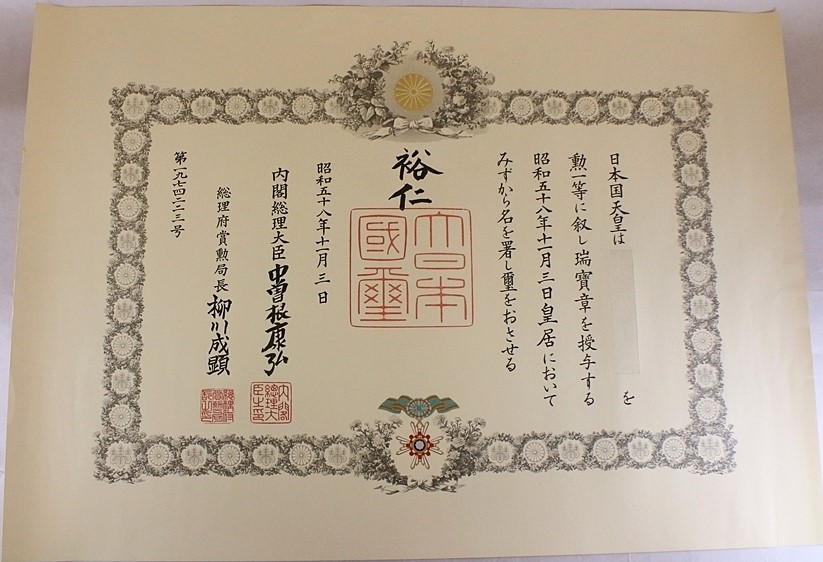 日本国天皇は を
勲一等に叙し瑞寶章を授与する
昭和五十八年十一月三日皇居において
みずから名を署し璽をおさせる
裕仁
大日本國璽
昭和五十八年十一月三日
内閣総理大臣 中曽根康弘
内閣総理大臣之印
総理府賞勲局長 柳川成顕
第一九七四二二三号